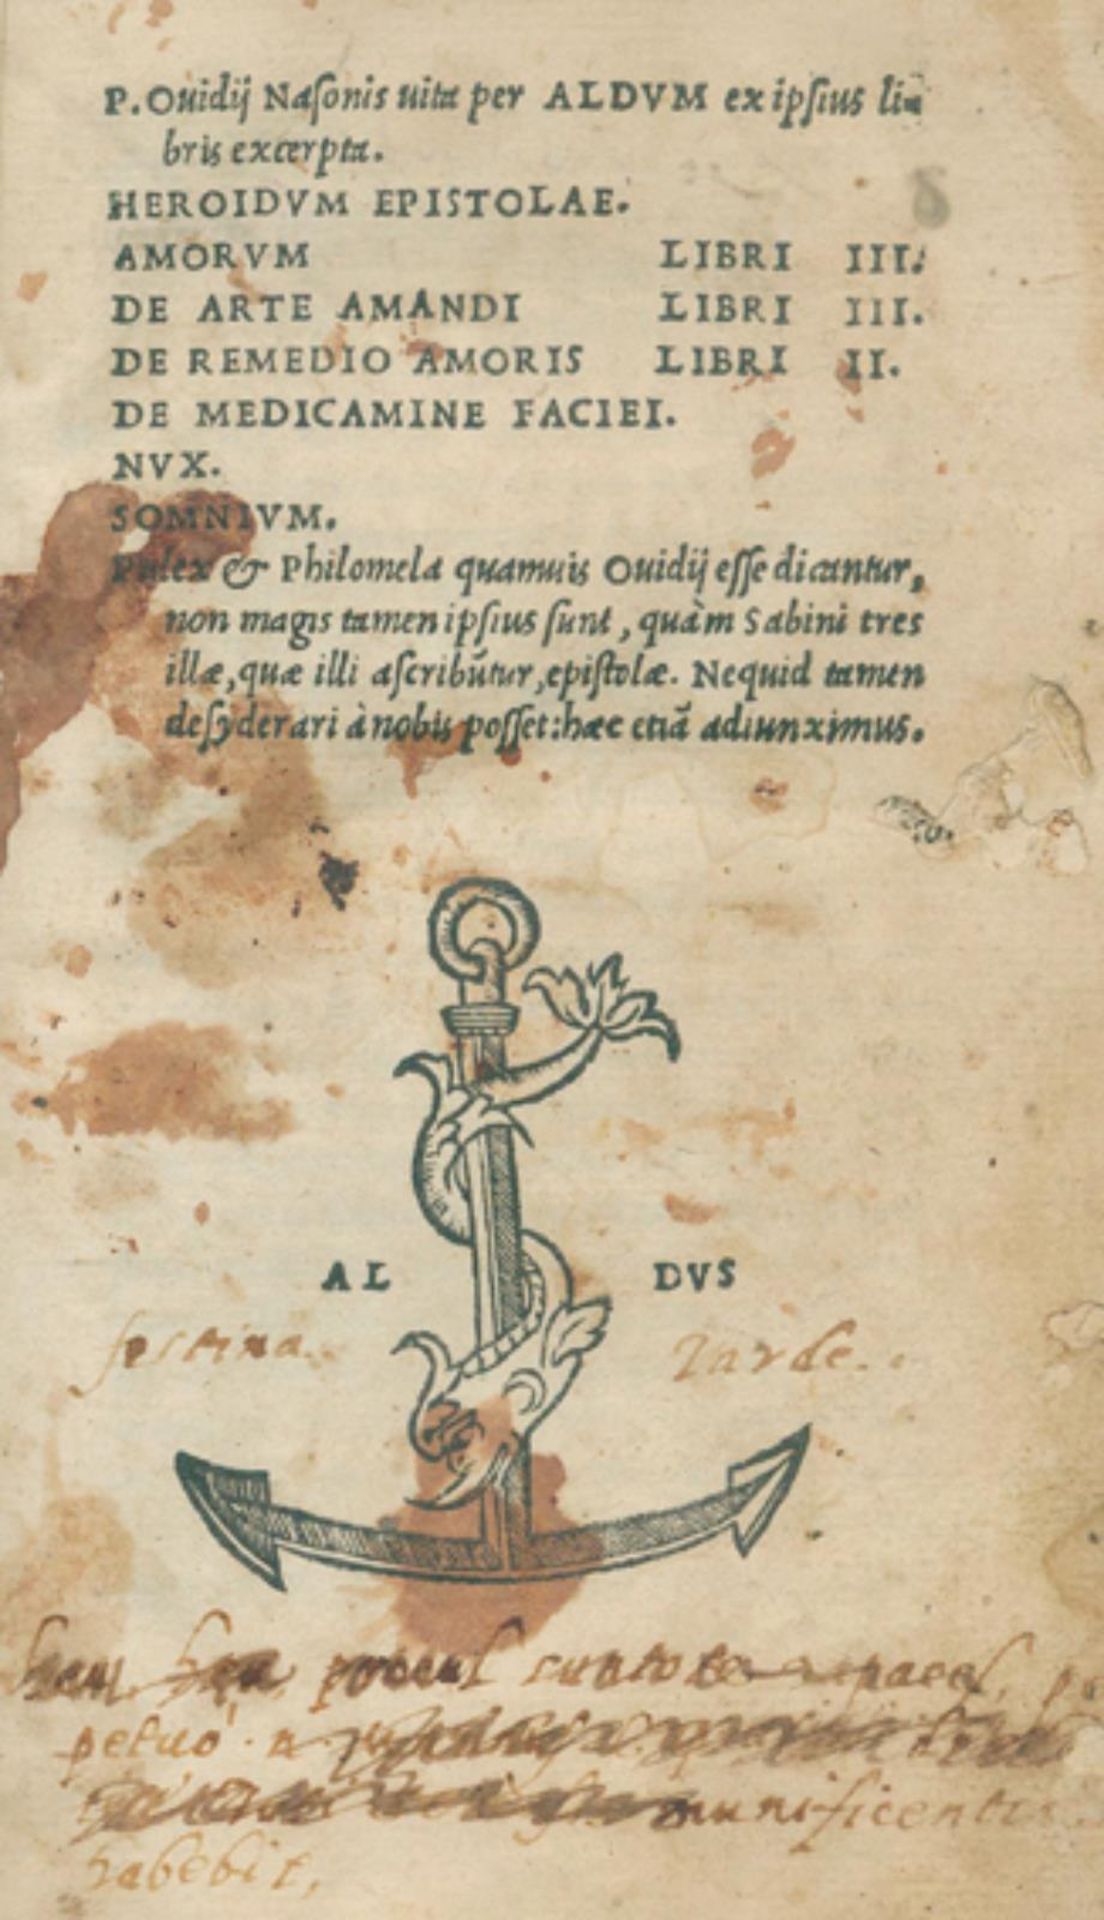 P. Ouidij Nasonis uita per ALDVM ex ipsius li-
bris excerpta.
HEROIDVM EPISTOLAE.
AMORVM LIBRI III.
DE ARTE AMANDI LIBRI III.
DE REMEDIO AMORIS LIBRI II.
DE MEDICAMINE FACIEI.
NVX.
SOMNIVM.
Pulex & Philomela quamuis Ouidij esse dicantur,
non magis tamen ipsius sunt, quàm Sabini tres
illæ, quæ illi ascribũtur, epistolæ. Nequid tamen
desyderari à nobis posset: hæc etiã adiunximus.
AL DVS
festina. tarde.
procul
petuo
munificentis
habebit,